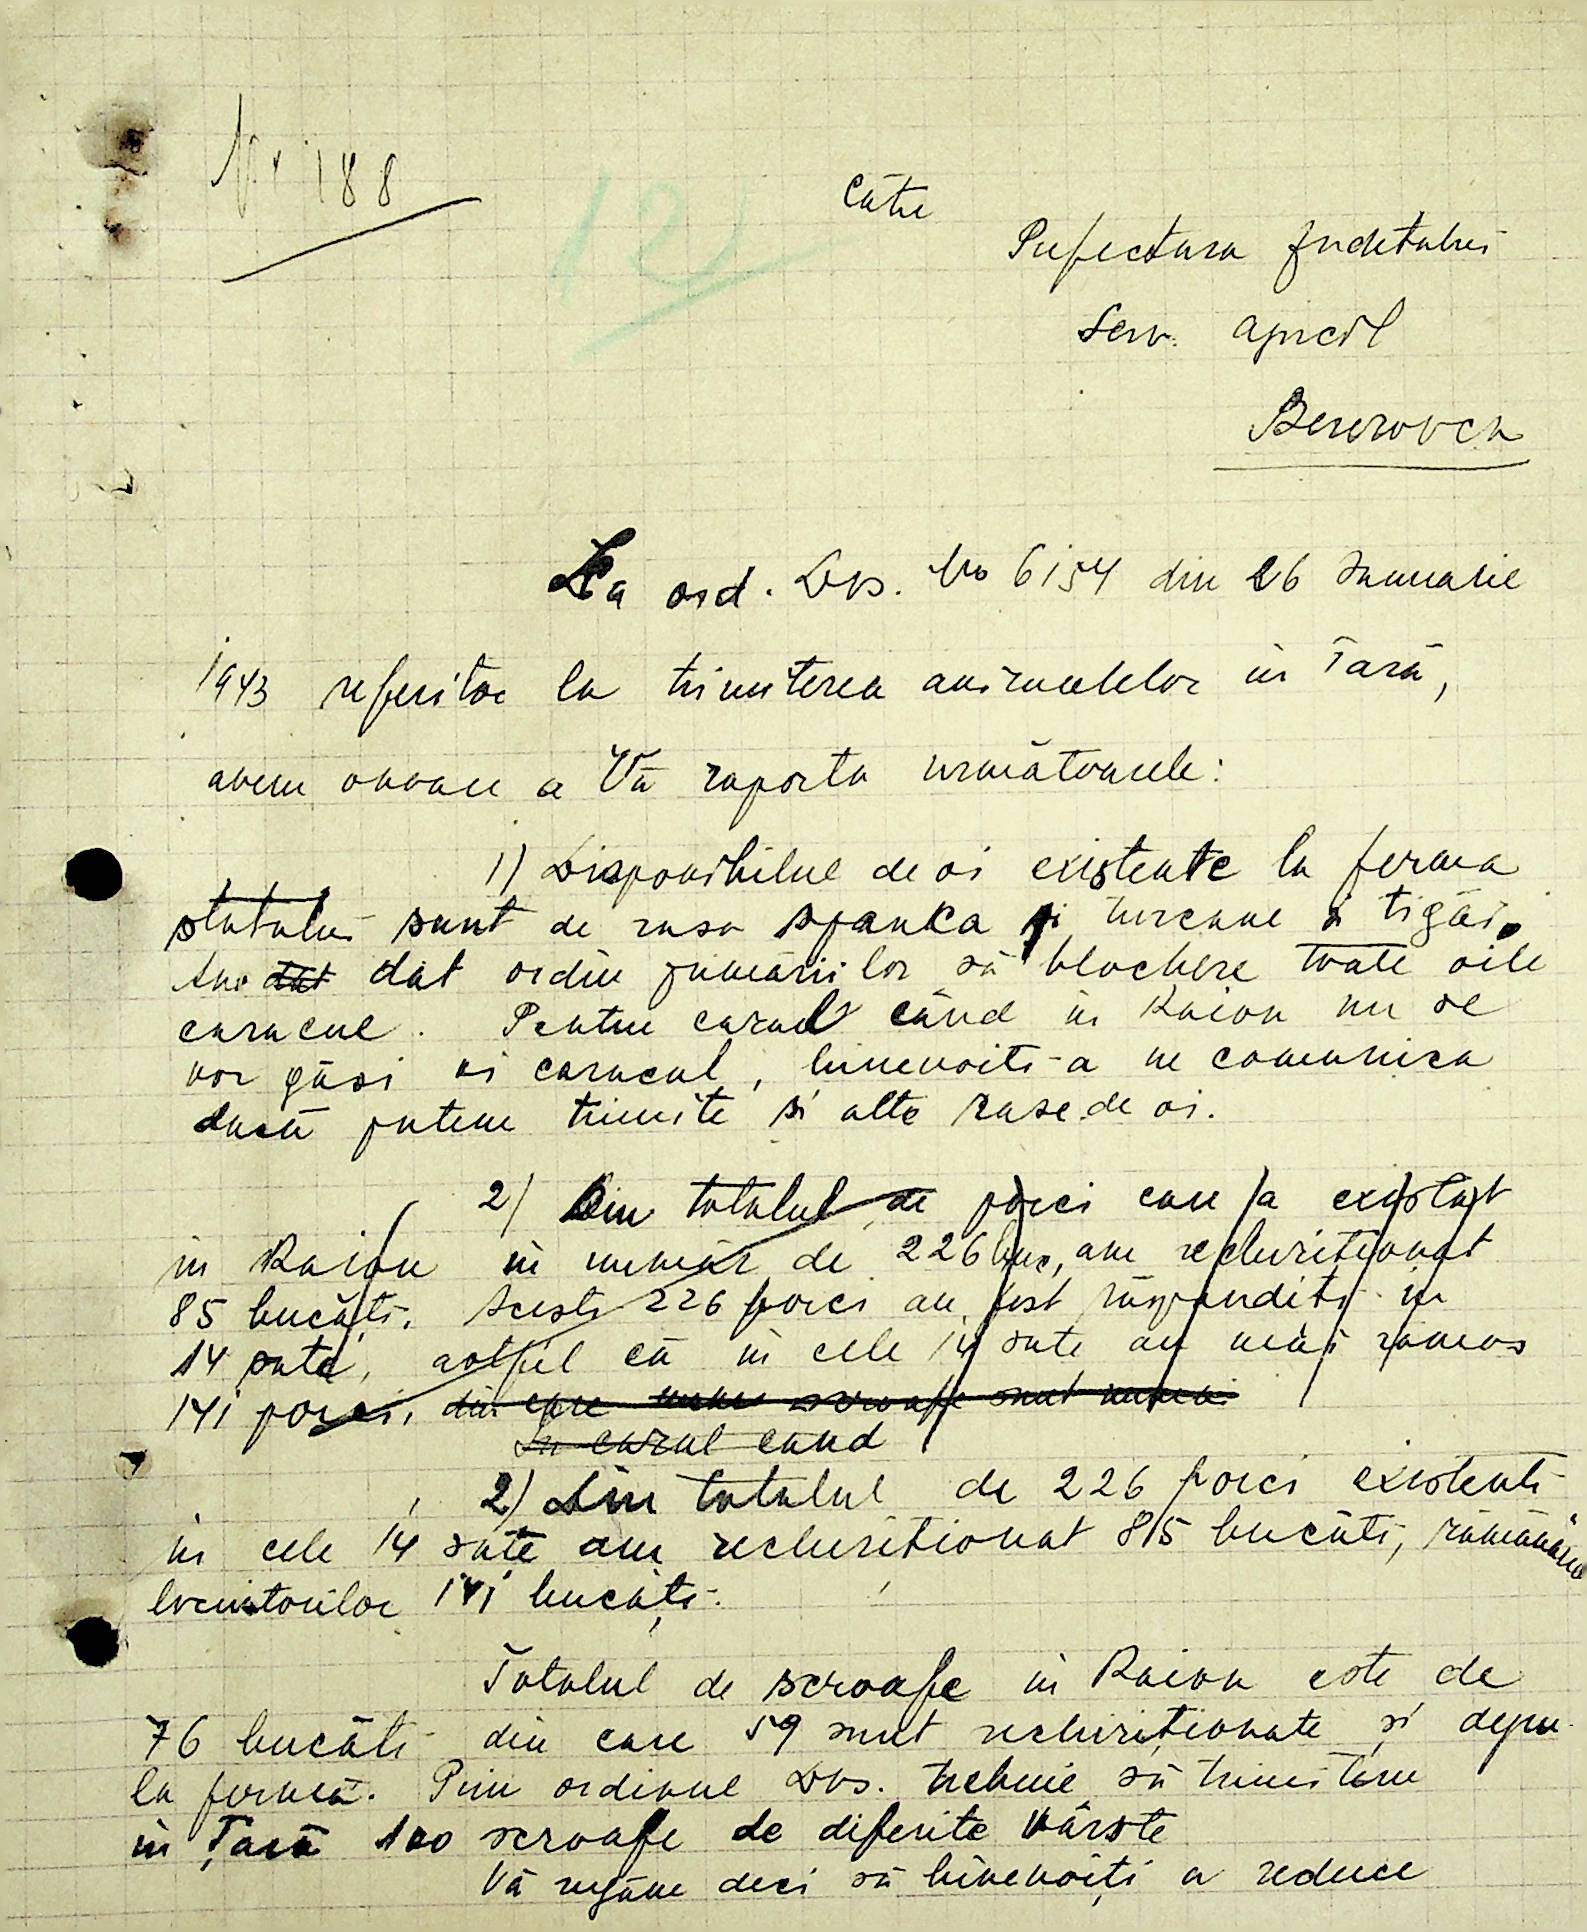 Nr 188
121
Către
Prefectura Județului
Serv. Agricol
Berezovca
La ord. Dvs. No 6154 din 26 Ianuarie
1943 referitor la trimiterea animalelor in Țară,
avem onoare a Vă raporta următoarele:
1) Disponibilul de oi existente la ferma
statului sunt de rasa spanka și turcane și tigăi.
Am dat dat ordin primăriilor să blocheze toate oile
caracul. Pentru cazul când in Raion nu se
vor găsi oi caracul, binevoiti a ne comunica
dacă putem trimite și alte rase de oi.
2) Din totalul de porci care a existat
in Raion in număr de 226 buc, am rechizitionat
85 bucăți. Acesti 226 porci au fost răspandiți in
14 sate, astfel că in cele 14 sate au mai rămas
141 porci, din care numai scroafe sunt numai
In cazul cand
2) Din totalul de 226 porci existenti
in cele 14 sate am rechizitionat 85 bucăti, rămânând
locuitorilor 141 bucăți.
Totalul de scroafe in Raion este de
76 bucăti din care 59 sunt rechiziționate și depu-
la fermă. Prin ordinul Dvs. trebuie să trimitem
in Țară 100 scroafe de diferite vârste
Vă rugăm deci să binevoiți a reduce